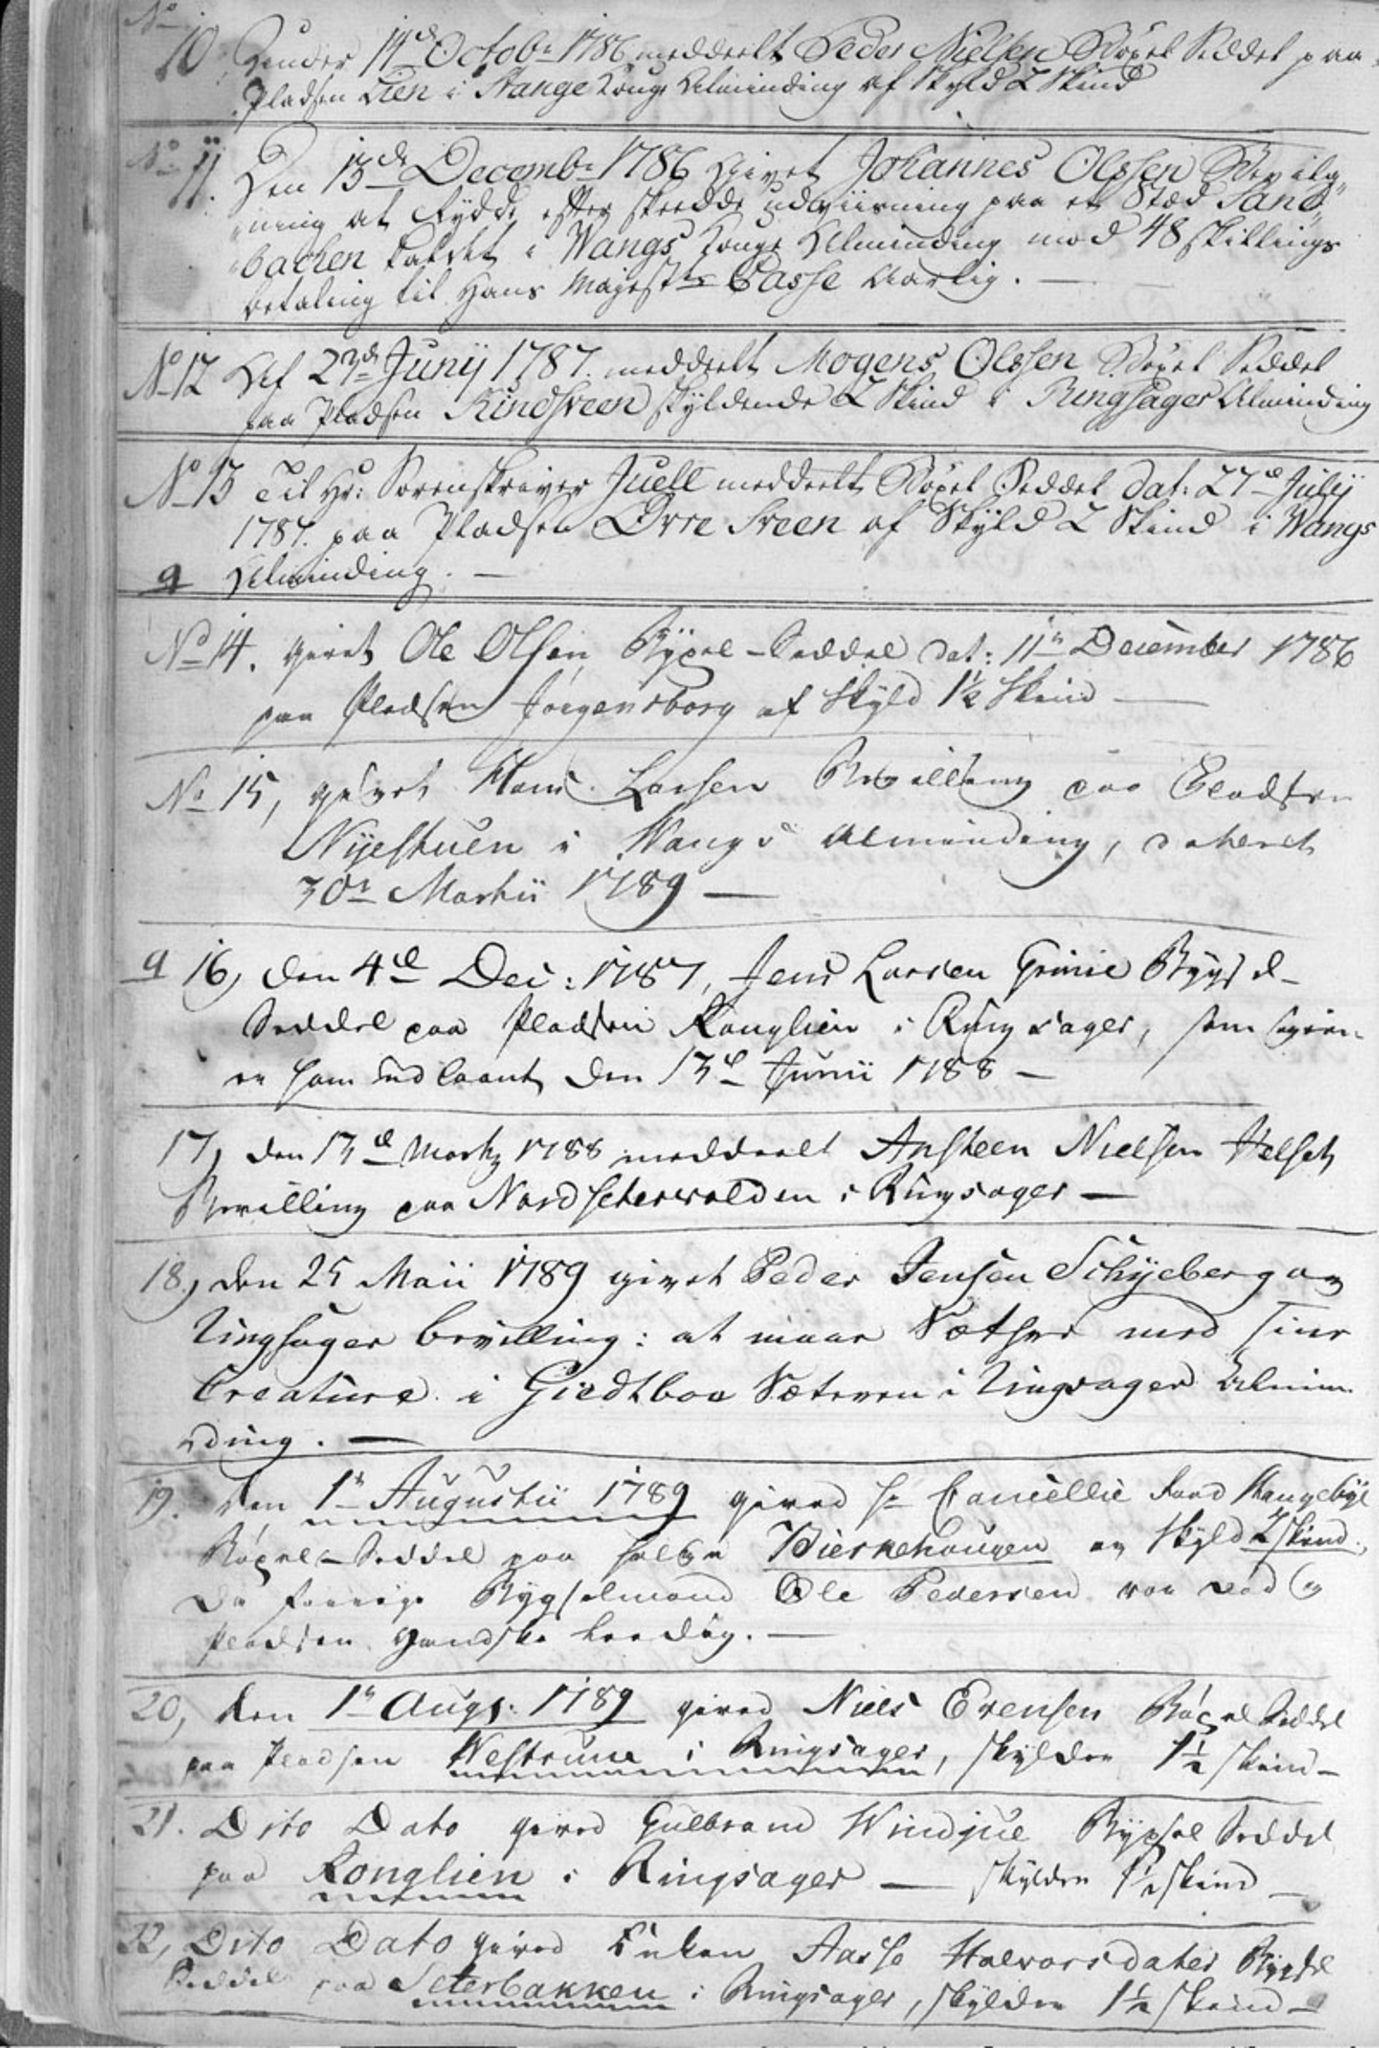 No 10 Under 14de Octobr 1786 meddeelt Peder Nielsen Böxel Seddel paa
Pladsen Lien i Stange Kongs Alminding af Skyld 2 Skind
No 11. Den 13de Decembr 1786 Givet Johannes Olssen Bevilg„
„ning at Rydde efter skeedde udviisning paa et Stæd Sand„
„backen kaldet i Wangs Kongs Alminding mod 48 skillings
betaling til Hans Majests Casse Aarlig. —
No 12 Af 23de Junij 1787. meddeelt Mogens Olssen Böxel Seddel
paa Pladsen Kindsveen skyldende 2 Skind i Ringsager Alminding
No 13 Til Hr: Sorenskriver Juell meddeelt Böxel Seddel dat: 27de Julij
1787. paa Pladsen Øvre Sveen af Skyld 2 Skind i Wangs
q Alminding. —
No 14. givet Ole Olsen Byxel-Seddel dat: 11te December 1786
paa Pladsen Jörgensborg af Skyld 1½ Skind —
No 15, givet Hans Larsen Bevilling paa Pladsen
Nyestuen i Wangs Alminding, dateret
30te Martii 1789 —
q 16, den 4de Dec: 1787, Jens Larsen Grinie Bygsel-
Seddel paa Pladsen Konglien i Ringsager, som
en ham udlaant den 13de Junii 1788 —
17, den 13de Martz 1788 meddeelt Ansteen Nielsen Helset
Bevilling paa Nordseterwolden i Ringsager —
18, den 25 Maii 1789 givet Peder Jensen Schyeberg av
Ringsager bevilling: at maae Sætre med sine
Creature i Giedtboe Sæteren i Ringsager Almin
ding. —
19. den 1te Augustii 1789 gived Hr Cancellie Raad Stangebye
Böxel-Seddel paa Bierkehougen av Skyld 2 Skind,
da forrige Bygselmand Ole Pedersen var död og
Pladsen gandske Leedig. —
20, den 1te Augs: 1789 gived Niels Evensen Böxel Seddel
paa Pladsen Westrune i Ringsager, skylder 1½ skind —
21. Dito Dato gived Gulbrand Windjue Bygsel Seddel
paa Konglien i Ringsager — skylder 1½ skind —
22, Dito Dato gived Enken Aase Halvorsdater Bygsel
Seddel paa Seterbakken i Ringsager, skylder 1½ skind —